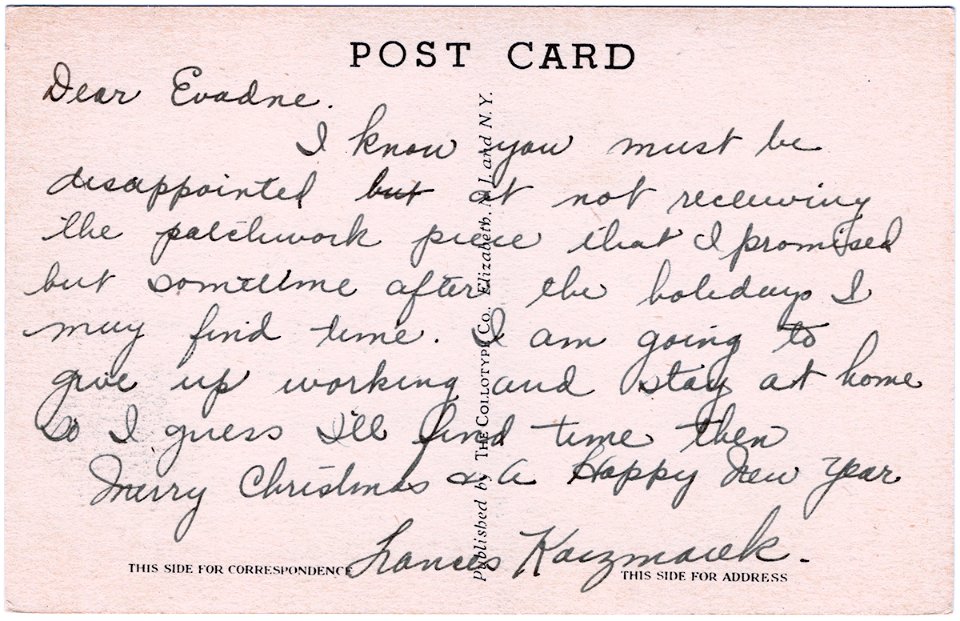 POST CARD
Dear Evadne.
I know you must be
disappointed but at not receiving
the patchwork piece that I promised
but sometime after the holidays I
may find time. I am going to
give up working and stay at home
so I guess I'll find time then
Merry Christmas & A Happy New Year
Frances Kaczmarek.
THIS SIDE FOR CORRESPONDENCE
THIS SIDE FOR ADDRESS
Published by THE COLLOTYPE CO. Elizabeth, N. J. and N. Y.